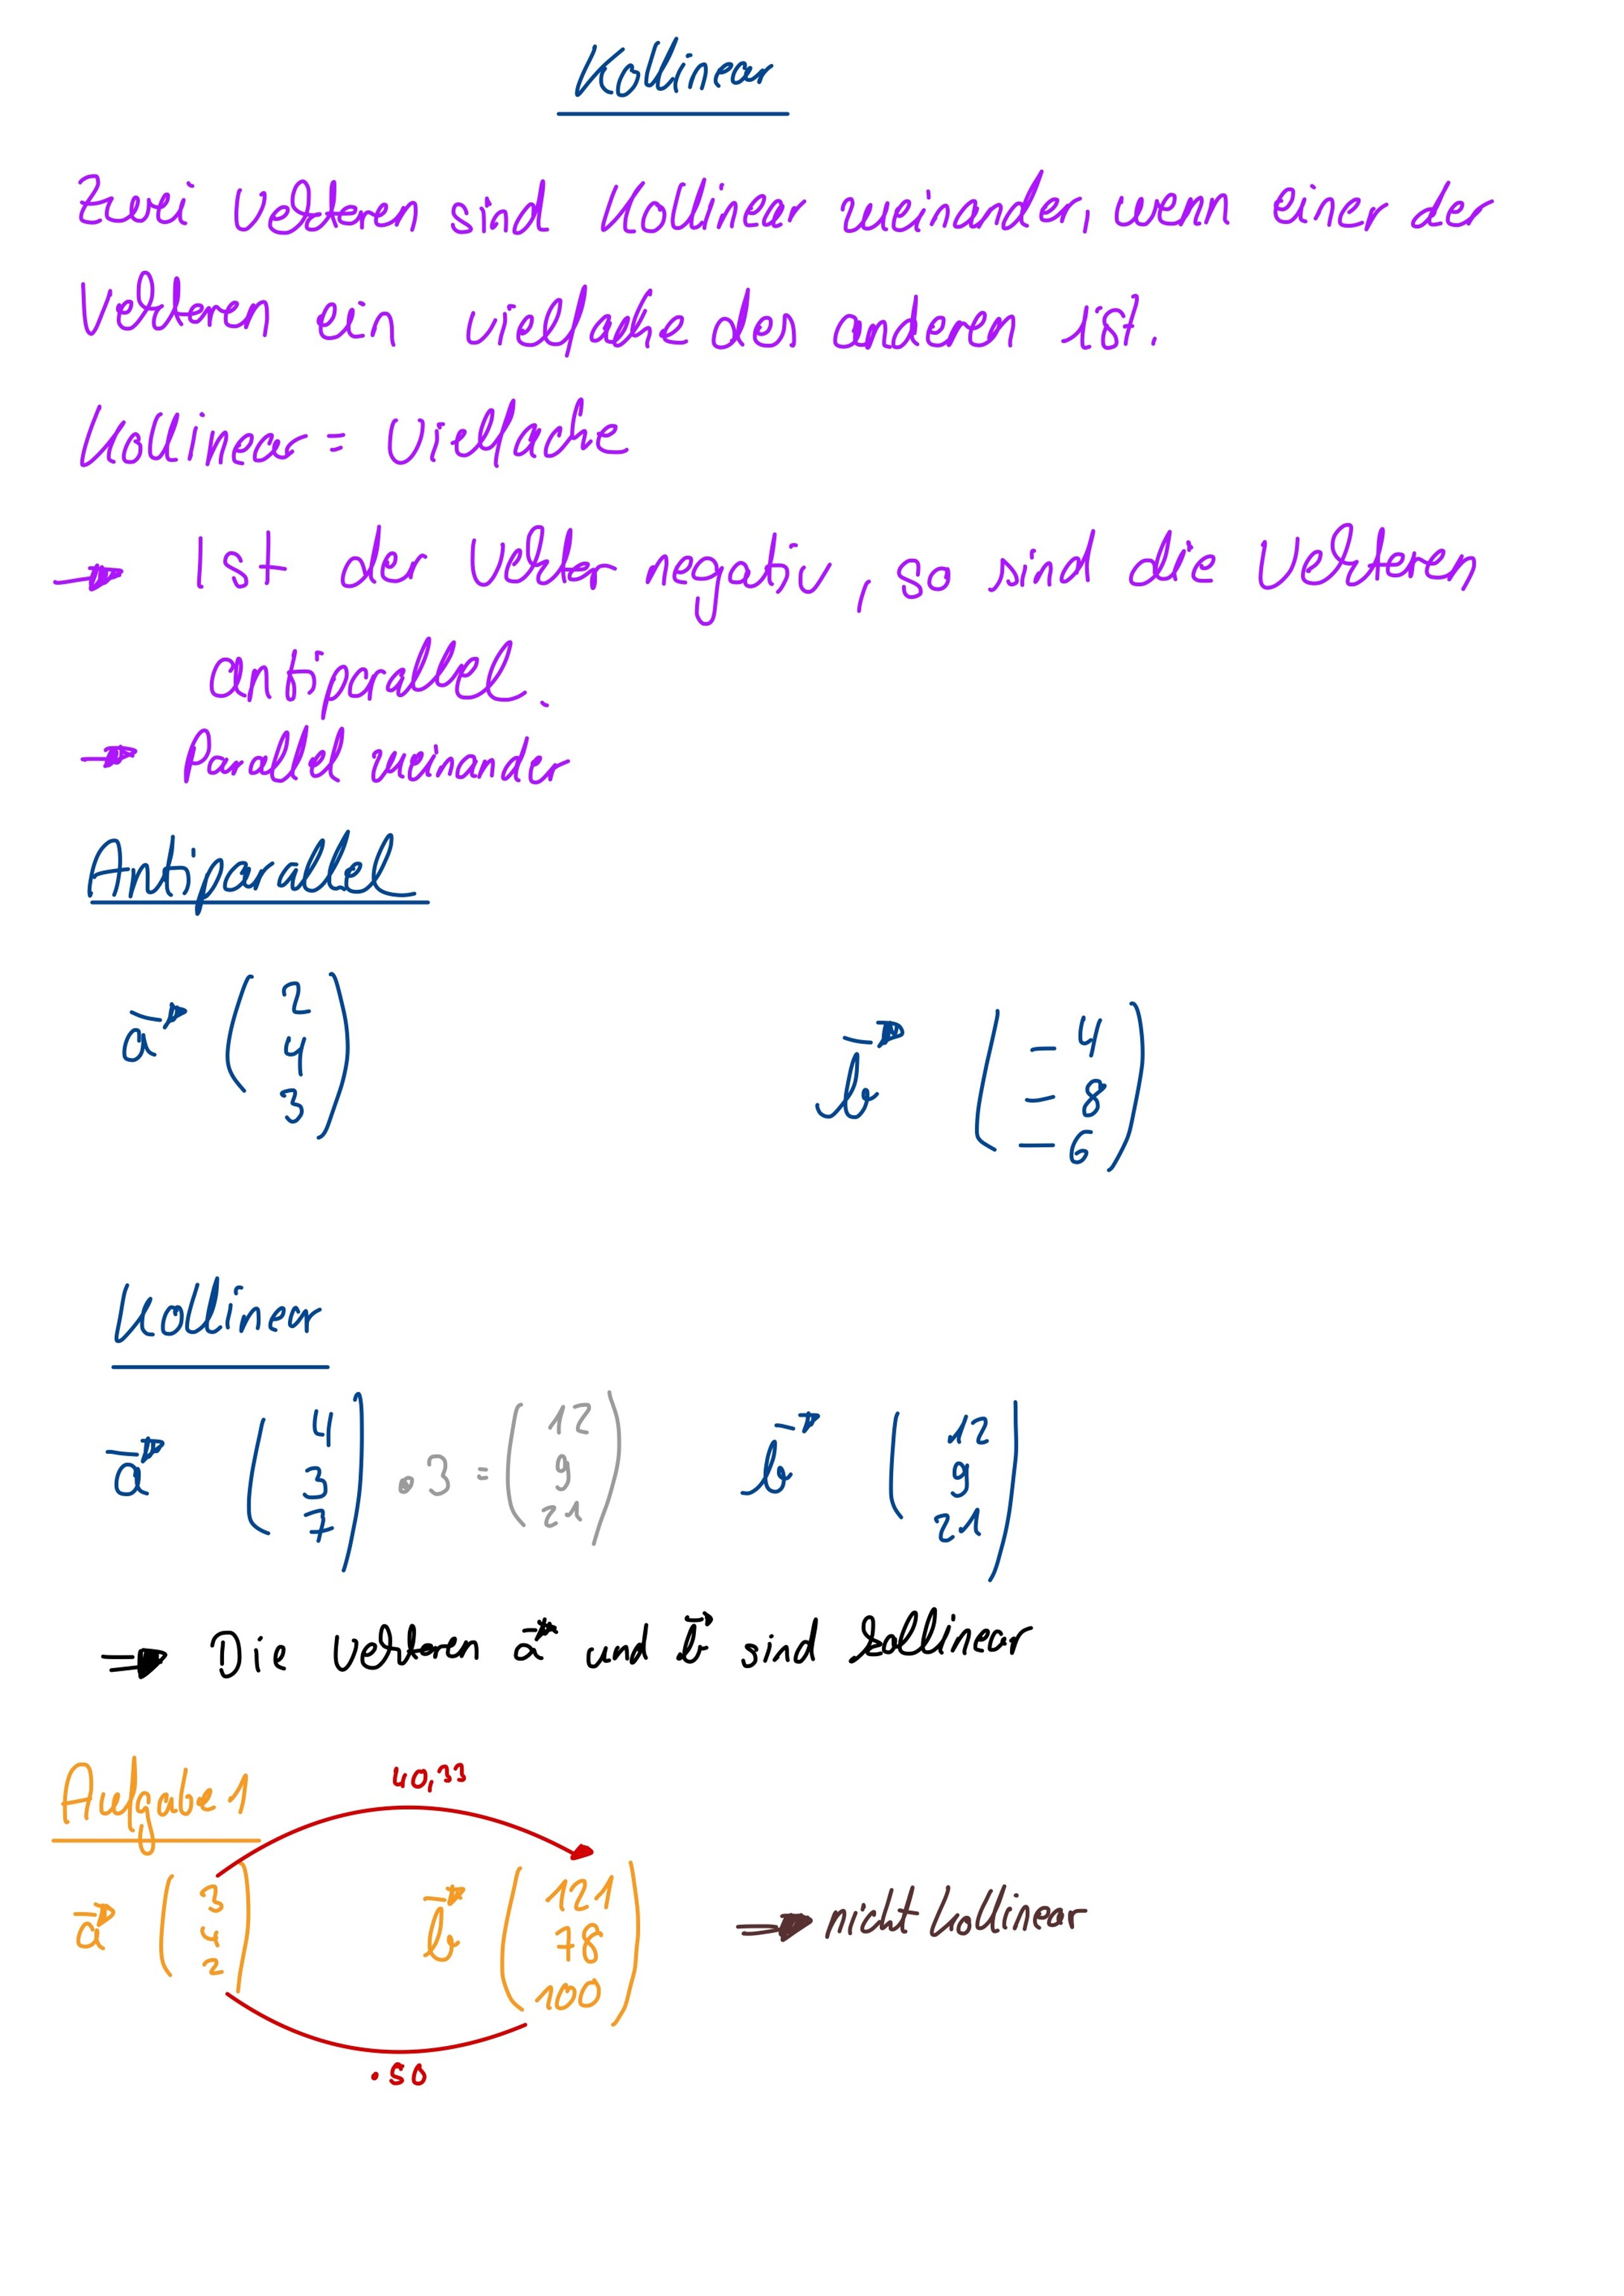 Kollinear
Zwei Vektoren sind Kollinear zueinander, wenn einer der
Vektoren ein vielfache des anderen ist.
Kollinear = Vielfache
→ Ist der Vektor negativ, so sind die Vektoren
antiparallel.
→ Parallel zueinander
Antiparallel
a→ ( 2
4
3 )
b→ ( - 4
- 8
- 6 )
Kollinear
a→ ( 4
3
7 )
·3 = ( 12
9
21 )
b→ ( 12
9
21 )
⇒ Die Vektoren a→ und b→ sind kollinear
Aufgabe 1
40,33
a→ ( 3
4
2 )
b→ ( 121
78
100 )
⇒ nicht kollinear
·50